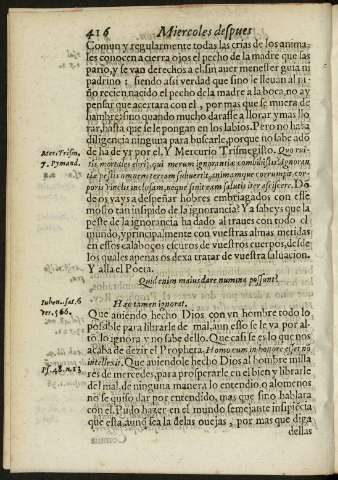 416 Miercoles despues
Comun y regularmente todas las crias de los anima-
les conocen a cierra ojos el pecho de la madre que las
pario, y se van derechos a el sin auer menester guia ni
padrino: siendo assi verdad que sino le lleuan al ni-
ño recien nacido el pecho de la madre a la boca, no ay
pensar que acertara con el, por mas que se muera de
hambre, sino quando mucho darasse a llorar y mas llo
rar, hasta que se le pongan en los labios. Pero no haura
diligencia ninguna para buscarle, porque no sabe adõ
de ha de yr por el. Y Mercurio Trismegisto. Quo rui-
Mer. Trism.
tis mortales ebrij, qui merum ignorantiæ combibistis? Ignoran
7. Pymand.
tiæ pestis omnem terram subuertit, animamque corrumpit cor-
poris vinclis inclusam, neque sinit eam salutis iter asciscere. Dõ
de os vays a despeñar hobres embriagados con esse
mosto tan insipido de la ignorancia? Ya sabeys que la
peste de la ignorancia ha dado al traues con todo el
mundo, y principalmente con vuestras almas metidas
en essos calaboços escuros de vuestros cuerpos, desde
los quales apenas os dexa tratar de vuestra saluacion.
Y alla el Poeta.
Quid enim maius dare numina possunt?
Iuben. sat. 6
Hæc tamen ignorat.
ver. 566.
Que auiendo hecho Dios con vn hombre todo lo
possible para librarle de mal, aun esso se le va por al-
to, lo ignora y no sabe dello. Que casi es es lo que nos
acaba de dezir el Propheta. Homo cum in honore esset no
Ps. 48. n. 13
intellexit. Que auiendole hecho Dios al hombre milla
res de mercedes, para prosperarle en el bien y librarle
del mal, de ninguna manera lo entendio o alomenos
no se quiso dar por entendido, mas que si no hablara
con el. Pudo hazer en el mundo semejante insipiēcia
que esta, aunq̃ sea la de las ouejas, por mas que diga
dellas